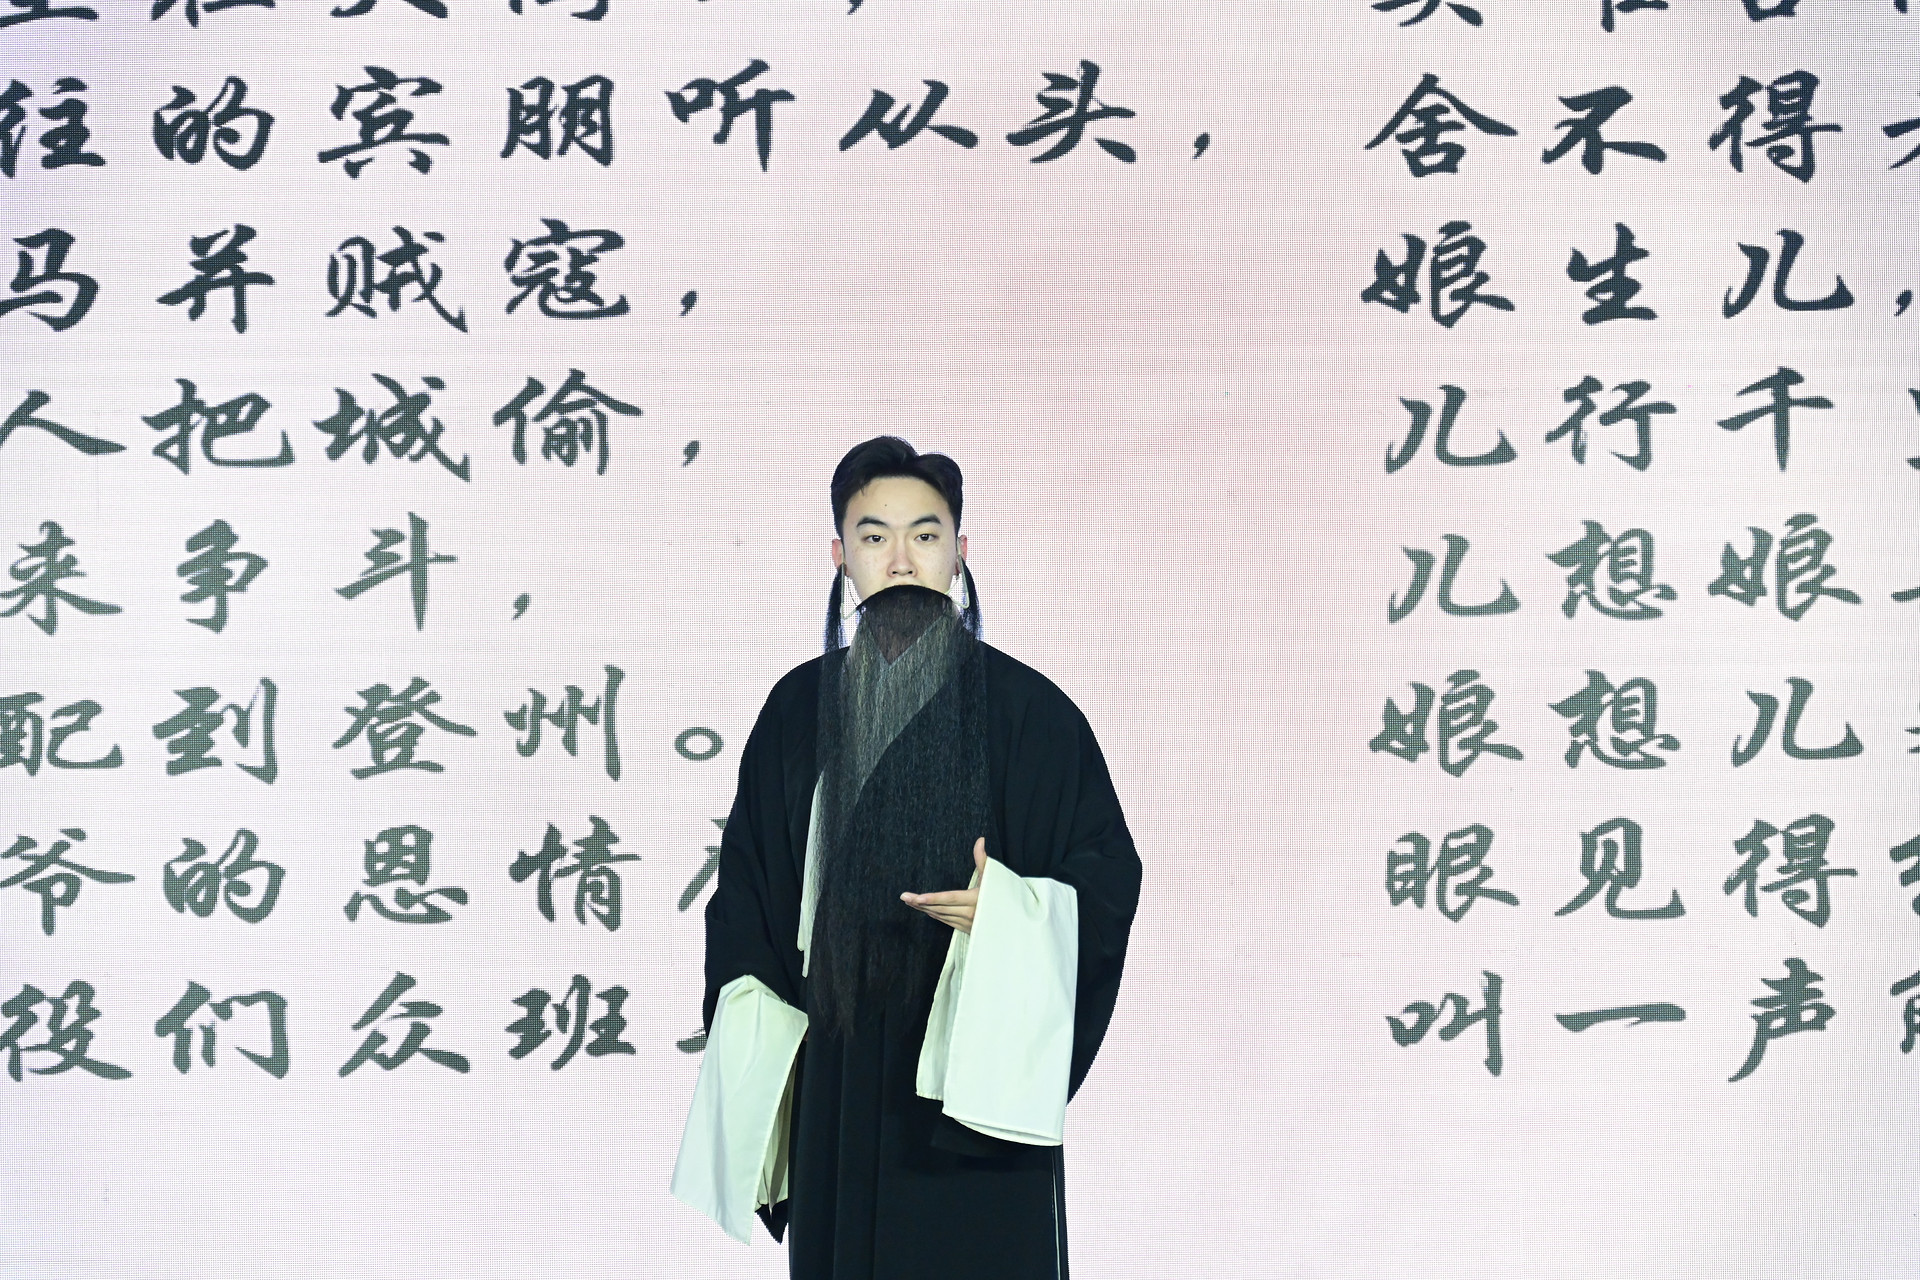 往的宾朋听从头，
马并贼寇，
人把城偷，
来争斗，
配到登州。
爷的恩情
役们众班
舍不得
娘生儿，
儿行千
儿想娘
娘想儿
眼见得
叫一声